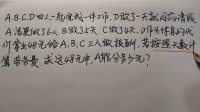 A.B.C.D四人一起完成一件工作,D做了一天就因病请假
A结果做了6天,B做了5天,C做了4天,D作为休息的代
价,拿出48元给A、B、C三人做报酬,若按照天数计
算劳务费,求这48元中,A能分多少元?